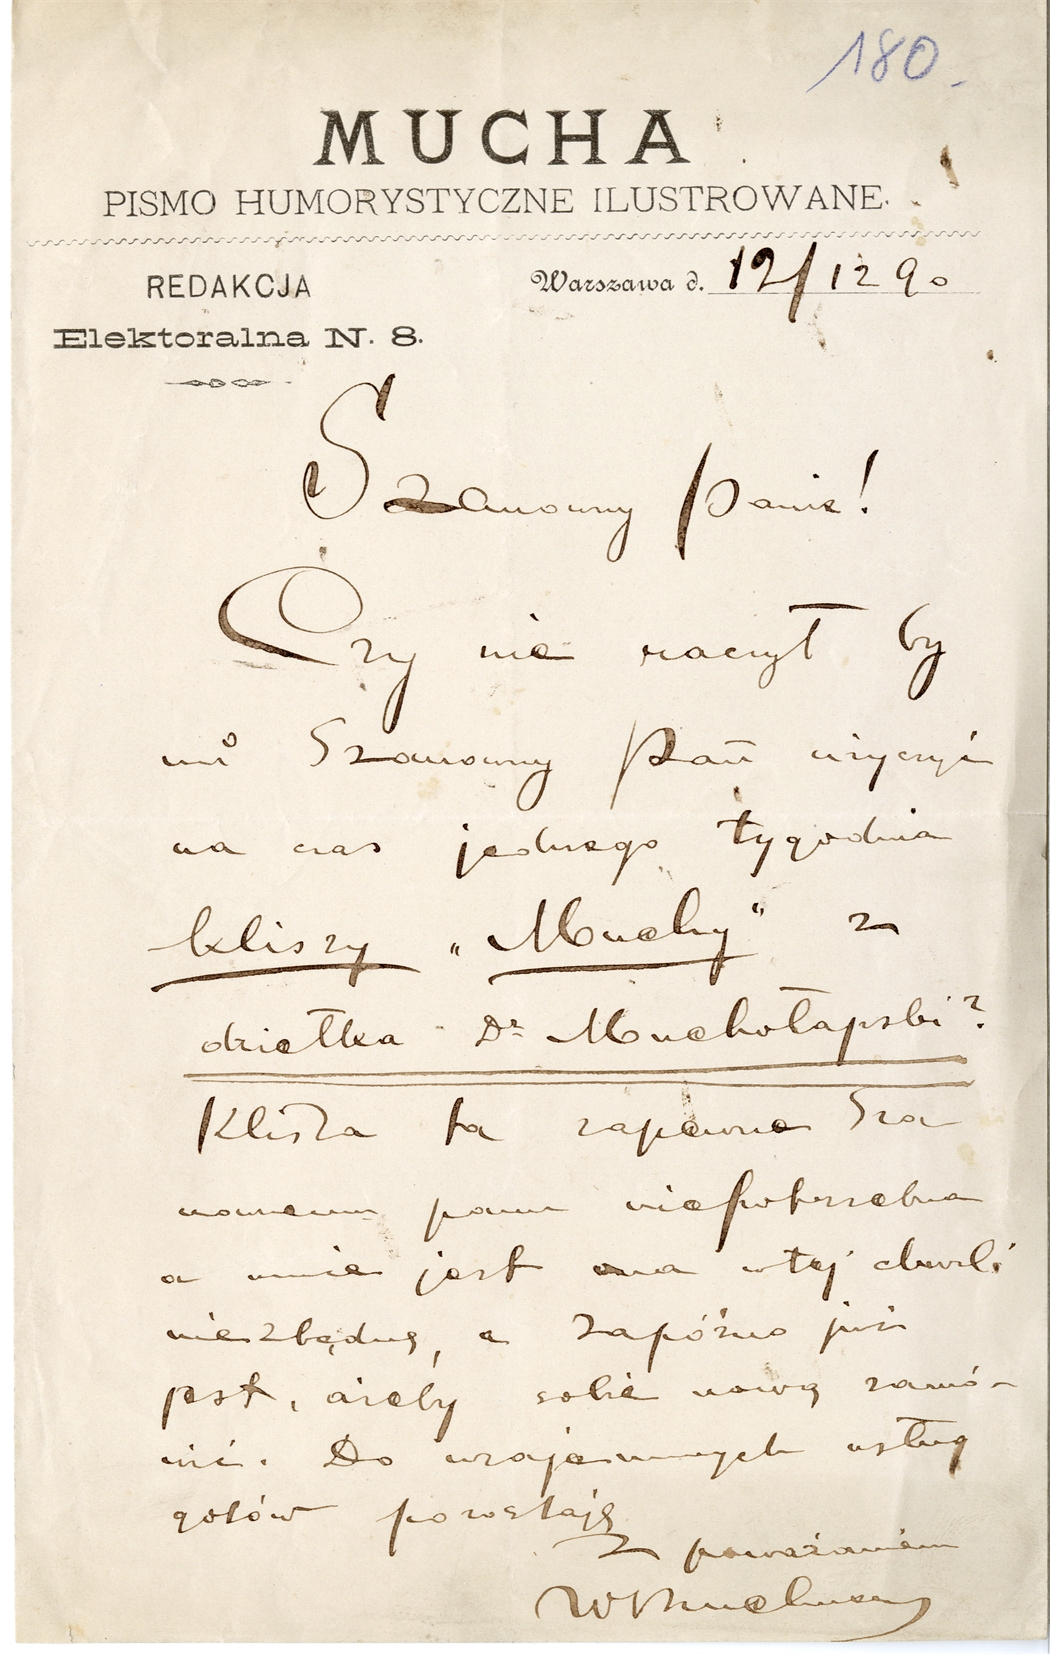 180.
MUCHA
PISMO HUMORYSTYCZNE ILUSTROWANE.
REDAKCJA
Elektoralna N. 8.
Warszawa d. 12/12 90
Szanowny Panie!
Czy nie raczył by
mi Szanowny Pan użyczyć
na czas jednego tygodnia
kliszy „Muchy" z
dziełka Dr Muchołapski?
Klisza ta zapewne Sza
nownemu panu niepotrzebna
a mnie jest ona w tej chwili
niezbędną, a zapóźno już
jest, ażeby sobie nową zamó-
wić. Do wzajemnych usług
gotów pozostaję
Z poważaniem